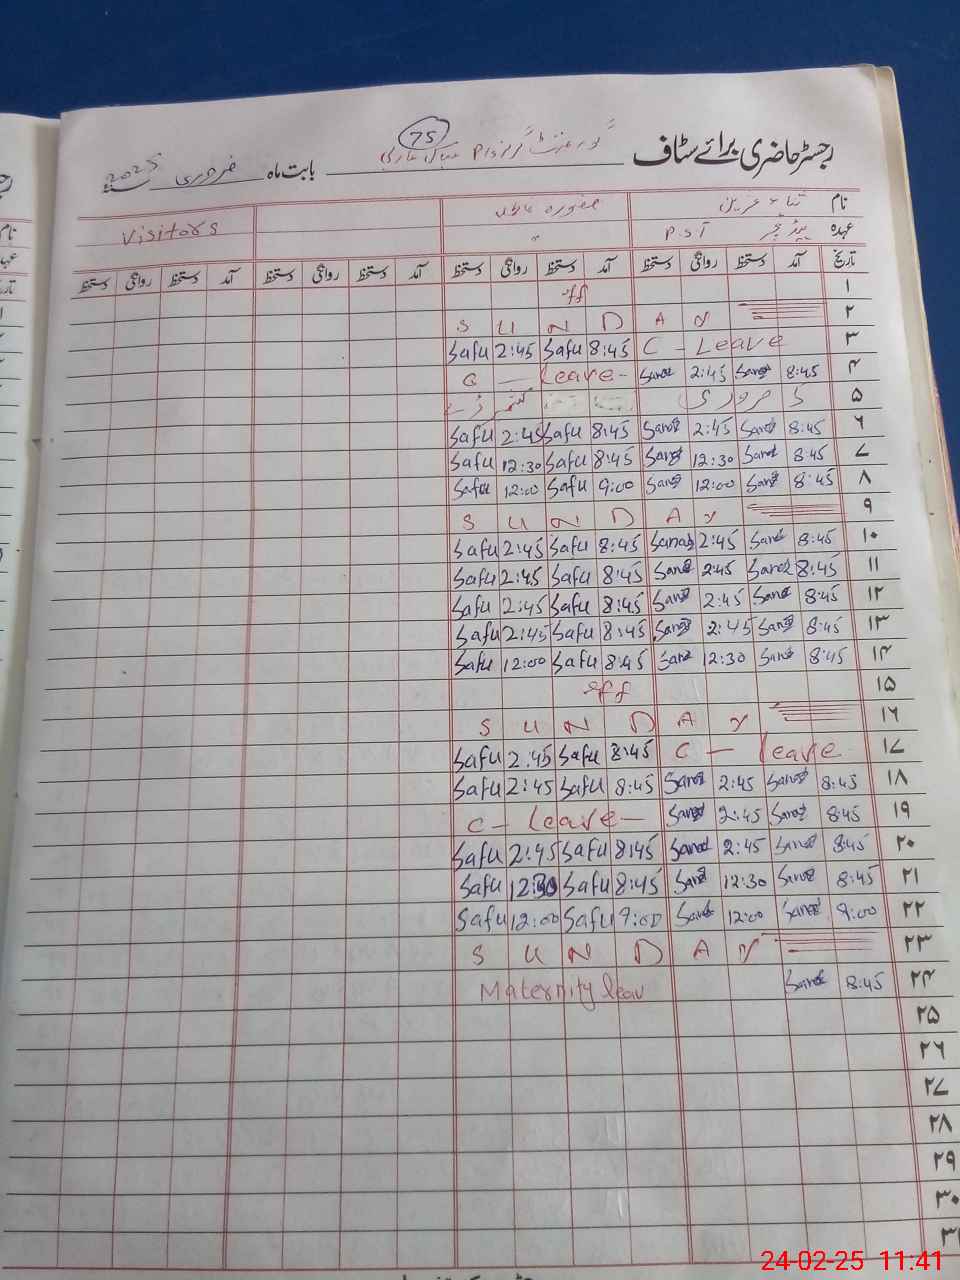 75
رجسٹر حاضری برائے سٹاف گورنمنٹ گرلز P/S بابت ماہ فروری 2025
نام ثناء عزیز صفورہ Visitors
عہدہ ہیڈ ٹیچر PST "
تاریخ آمد دستخط روانگی دستخط آمد دستخط روانگی دستخط آمد دستخط روانگی دستخط آمد دستخط روانگی دستخط
۱ off
۲ S U N D A Y
۳ C - Leave Safu 2:45 Safu 8:45
۴ C - Leave - Sana 2:45 Sana 8:45
۵ 5 فروری
۶ Safu 2:45 Safu 8:45 Sana 2:45 Sana 8:45
۷ Safu 12:30 Safu 8:45 Sana 12:30 Sana 8:45
۸ Safu 12:00 Safu 9:00 Sana 12:00 Sana 8:45
۹ S U N D A Y
۱۰ Safu 2:45 Safu 8:45 Sana 2:45 Sana 8:45
۱۱ Safu 2:45 Safu 8:45 Sana 2:45 Sana 8:45
۱۲ Safu 2:45 Safu 8:45 Sana 2:45 Sana 8:45
۱۳ Safu 2:45 Safu 8:45 Sana 2:45 Sana 8:45
۱۴ Safu 12:00 Safu 8:45 Sana 12:30 Sana 8:45
۱۵ off
۱۶ S U N D A Y
۱۷ Safu 2:45 Safu 8:45 C - leave
۱۸ Safu 2:45 Safu 8:45 Sana 2:45 Sana 8:45
۱۹ C - leave - Sana 2:45 Sana 8:45
۲۰ Safu 2:45 Safu 8:45 Sana 2:45 Sana 8:45
۲۱ Safu 12:30 Safu 8:45 Sana 12:30 Sana 8:45
۲۲ Safu 12:00 Safu 9:00 Sana 12:00 Sana 9:00
۲۳ S U N D A Y
۲۴ Maternity leav Sana 8:45
۲۵
۲۶
۲۷
۲۸
۲۹
۳۰
۳۱
24-02-25 11:41